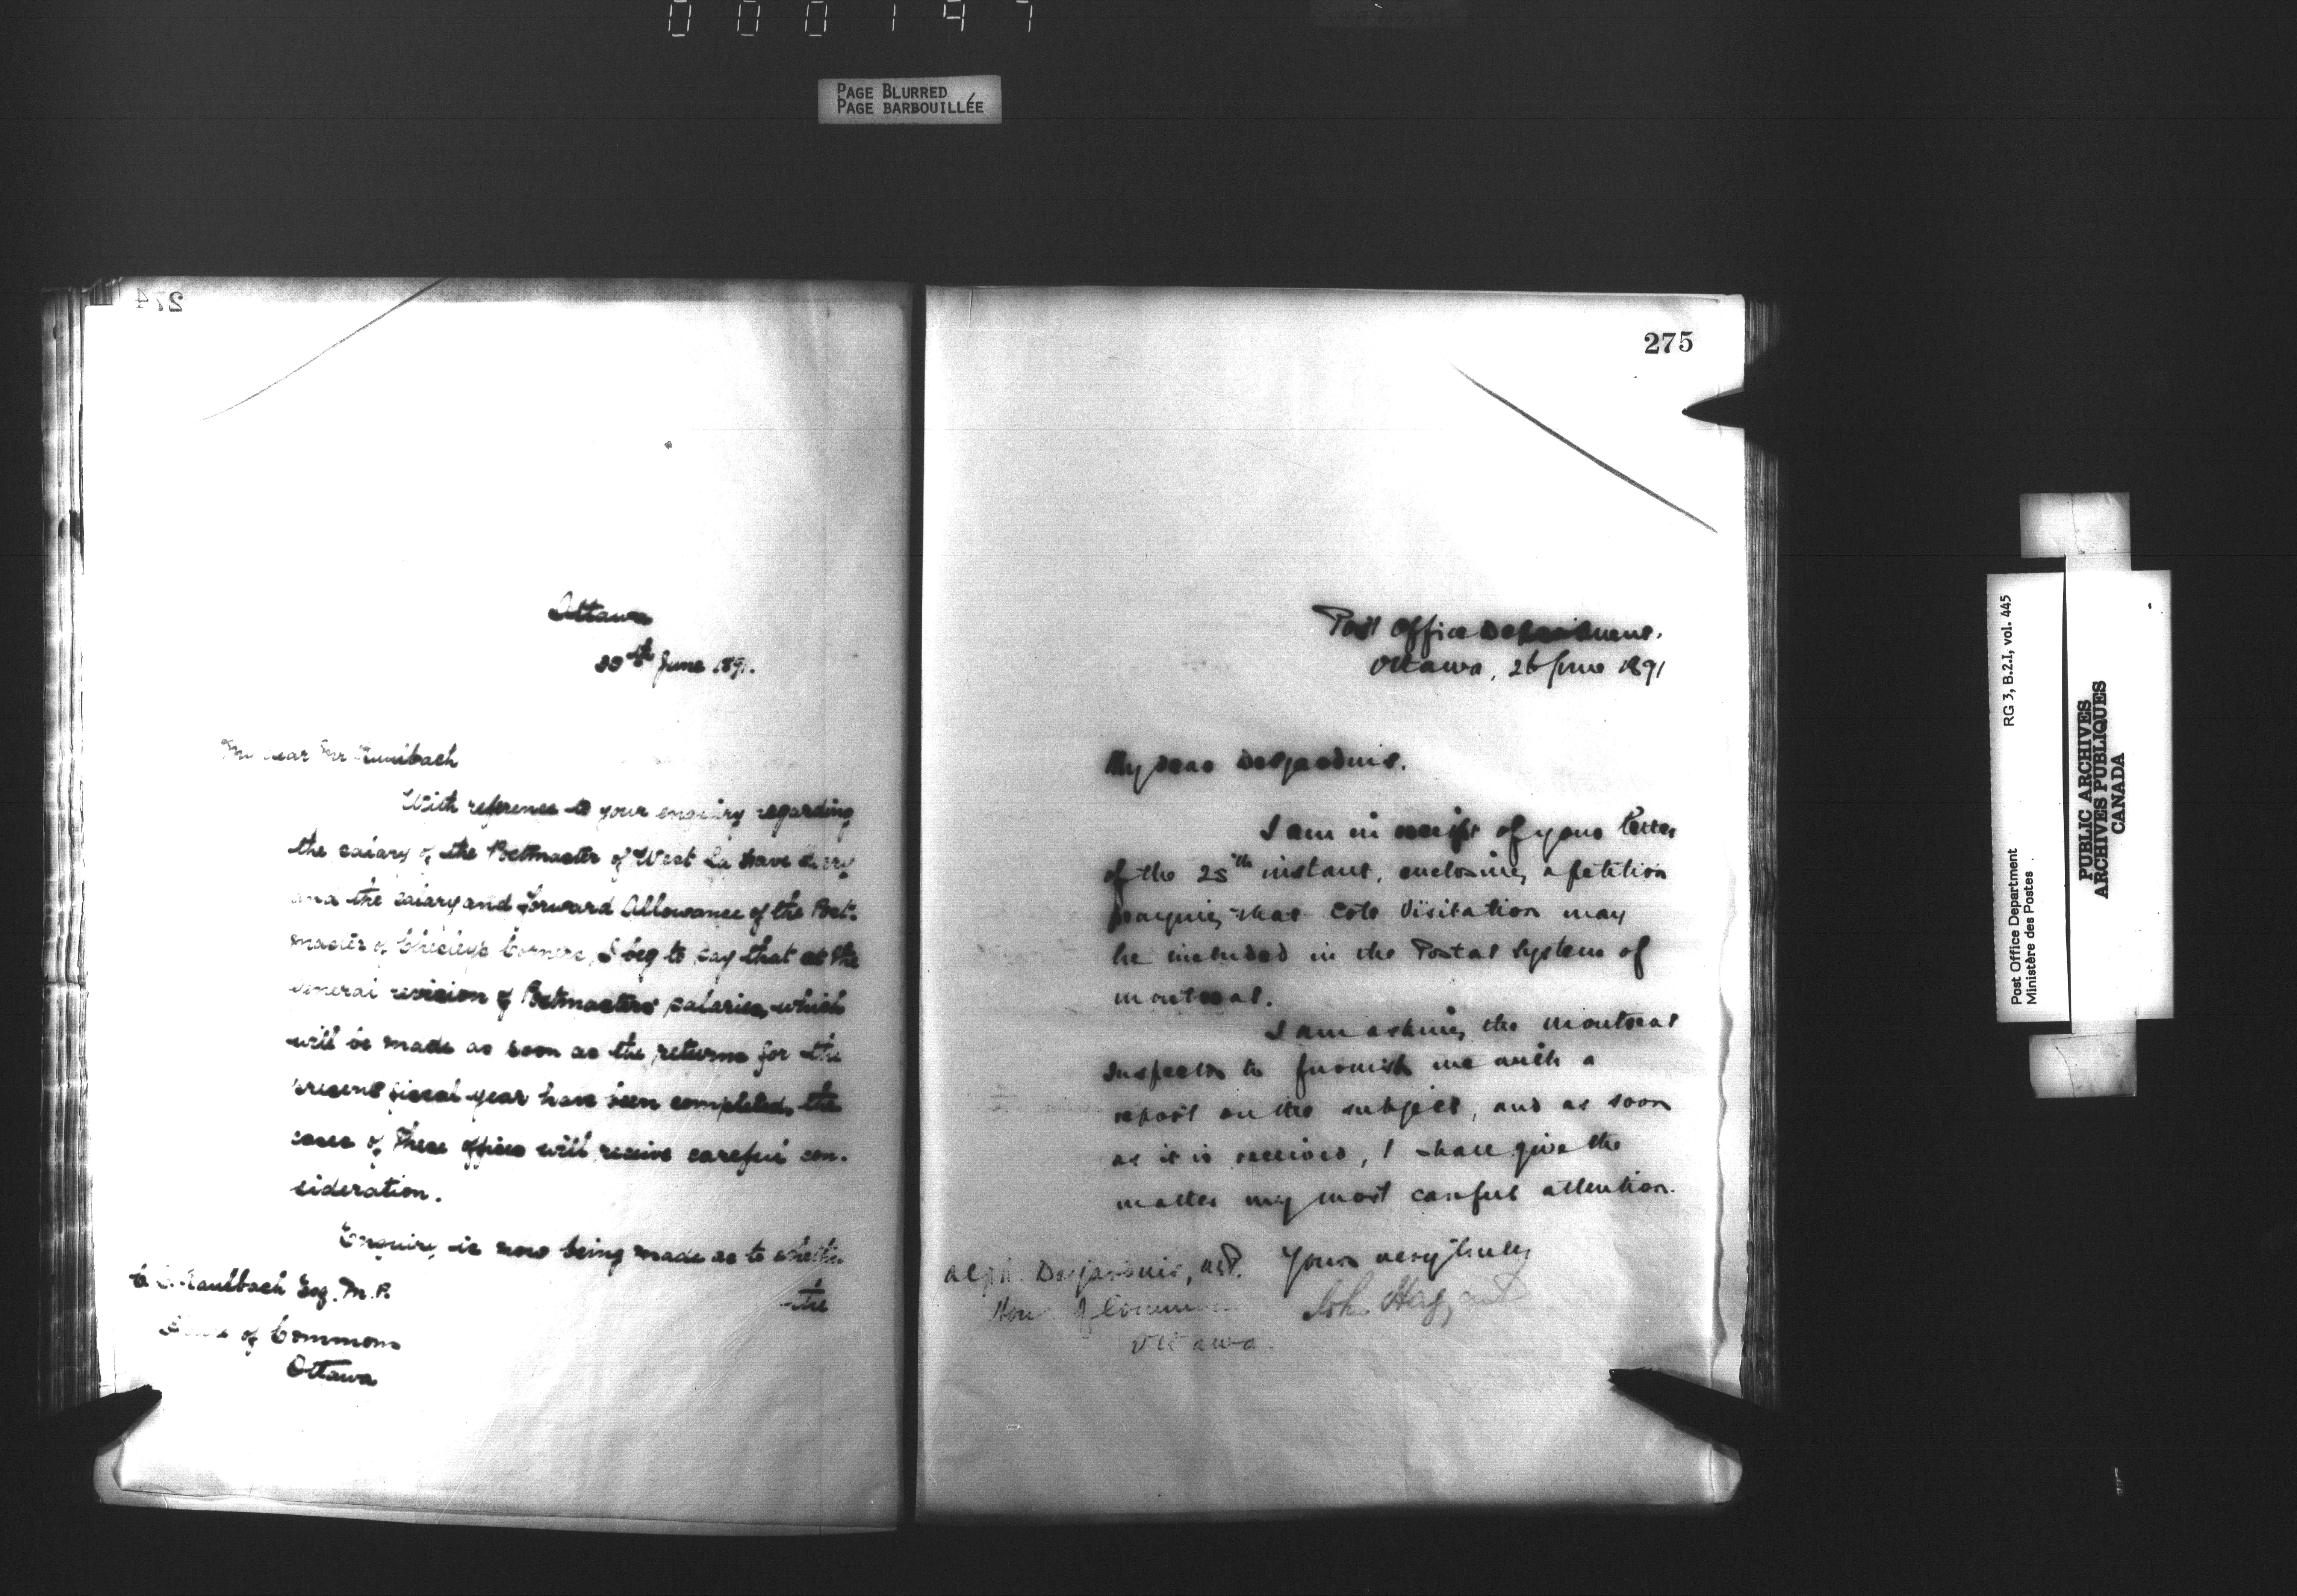 000147
PAGE BLURRED
PAGE BARBOUILLÉE
274
Ottawa
th June 1891.
My dear Mr Kaulbach
With reference to your enquiry regarding
the salary of the Postmaster of West La Have Ferry
and the salary and forward Allowance of the Post-
master of Chesley's Corners, I beg to say that at the
general revision of Postmasters' salaries, which
will be made as soon as the returns for the
present fiscal year have been completed, the
cases of these offices will receive careful con-
sideration.
Enquiry is now being made as to whether
the
C. E. Kaulbach Esq. M.P.
House of Commons
Ottawa
275
Post Office Department.
Ottawa, 26 June 1891
My dear Desjardins.
I am in receipt of your letter
of the 25th instant, enclosing a petition
praying that Cote Visitation may
be included in the Postal System of
Montreal.
I am asking the Montreal
Inspector to furnish me with a
report on the subject, and as soon
as it is received, I shall give the
matter my most careful attention.
Yours very truly
John Haggart
Alph. Desjardins, M.P.
House of Commons
Ottawa.
Post Office Department
Ministère des Postes
RG 3, B.2.I, vol. 445
PUBLIC ARCHIVES
ARCHIVES PUBLIQUES
CANADA